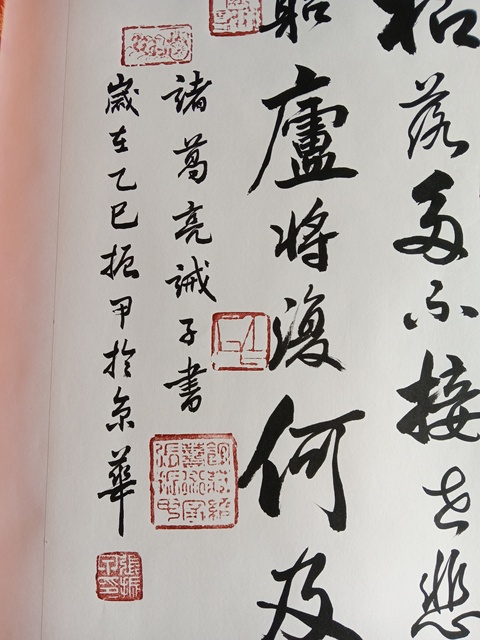 枯落多不接世悲
窮廬將復何及
諸葛亮誡子書
歲在乙巳振甲於京華
張振甲印